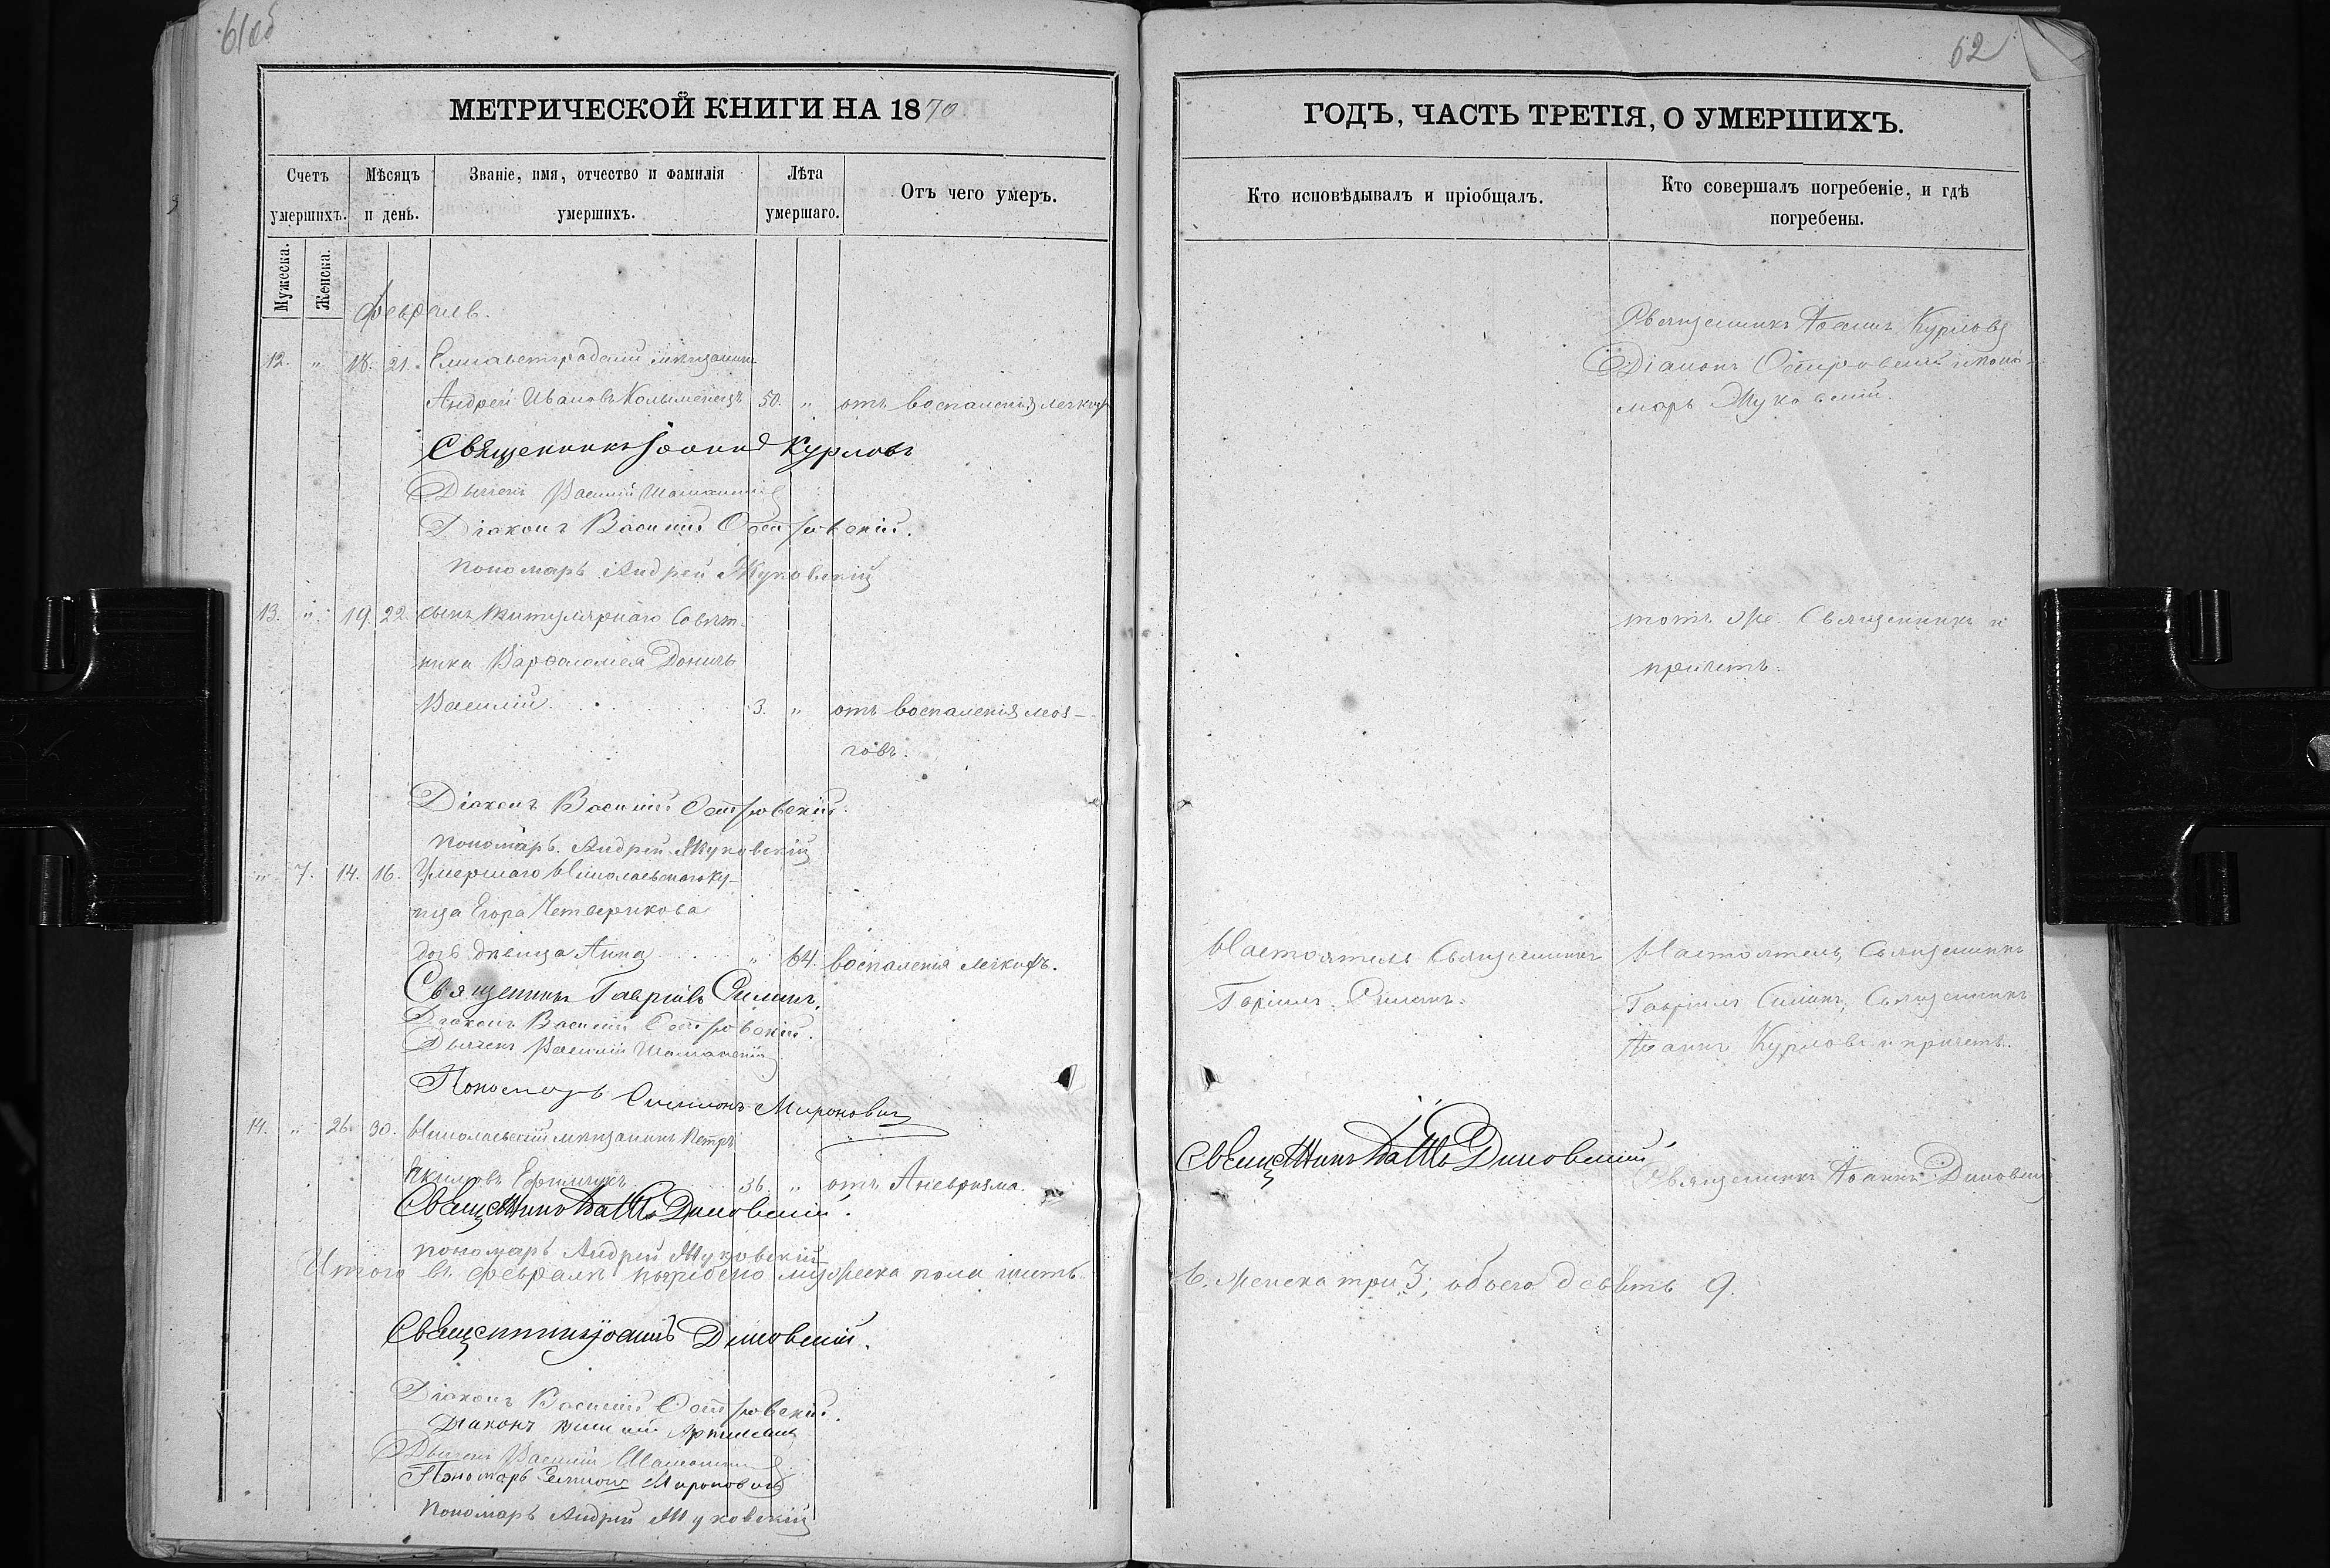 61об
МЕТРИЧЕСКОЙ КНИГИ НА 1870
Счетъ умершихъ.
Мѣсяцъ и день.
Званіе, имя, отчество и фамилія умершихъ.
Лѣта умершаго.
Отъ чего умеръ.
Мужеска.
Женска.
Февраль.
12. " 18. 21. Елисаветградскій мѣщанинъ
Андрей Ивановъ 50. " отъ воспаленія легкихъ
Священникъ Іоаннъ Курловъ
Дьячекъ Василій
Діаконъ Василій Островскій.
Пономарь Андрей Жуковскій
13. " 19. 22. Сынъ Титулярнаго Совѣт-
ника Варфоломея Донича
Василій 3. " отъ воспаленія моз-
говъ.
Діаконъ Василій Островскій.
Пономарь Андрей Жуковскій
" 7. 14. 16. Умершаго Николаевскаго ку-
пца Егора Четверикова
дочь дѣвица Анна " 64. воспаленія легкихъ.
Священникъ Гавріилъ Силинъ.
Діаконъ Василій Островскій.
Дьячекъ Василій
Пономарь Симеонъ Мироновичъ
14. " 26. 30. Николаевскій мѣщанинъ Петръ
36. " отъ Аневризма.
Священникъ Іоаннъ Диковскій.
Пономарь Андрей Жуковскій
Итого въ Февралѣ погребено мужеска пола шесть
Священникъ Іоаннъ Диковскій.
Діаконъ Василій Островскій.
Діаконъ
Дьячекъ Василій
Пономарь Симеонъ Мироновичъ
Пономарь Андрей Жуковскій
62
ГОДЪ, ЧАСТЬ ТРЕТІЯ, О УМЕРШИХЪ.
Кто исповѣдывалъ и пріобщалъ.
Кто совершалъ погребеніе, и гдѣ погребены.
Священникъ Іоаннъ Курловъ
Діаконъ Островскій и Поно-
марь Жуковскій.
тотъ же Священникъ и
причетъ.
Настоятель Священникъ
Гавріилъ Силинъ.
Настоятель, Священникъ
Гавріилъ Силинъ, Священникъ
Іоаннъ Курловъ и причетъ.
Священникъ Іоаннъ Диковскій
Священникъ Іоаннъ Диковскій
6. Женска три 3; обоего девять 9.